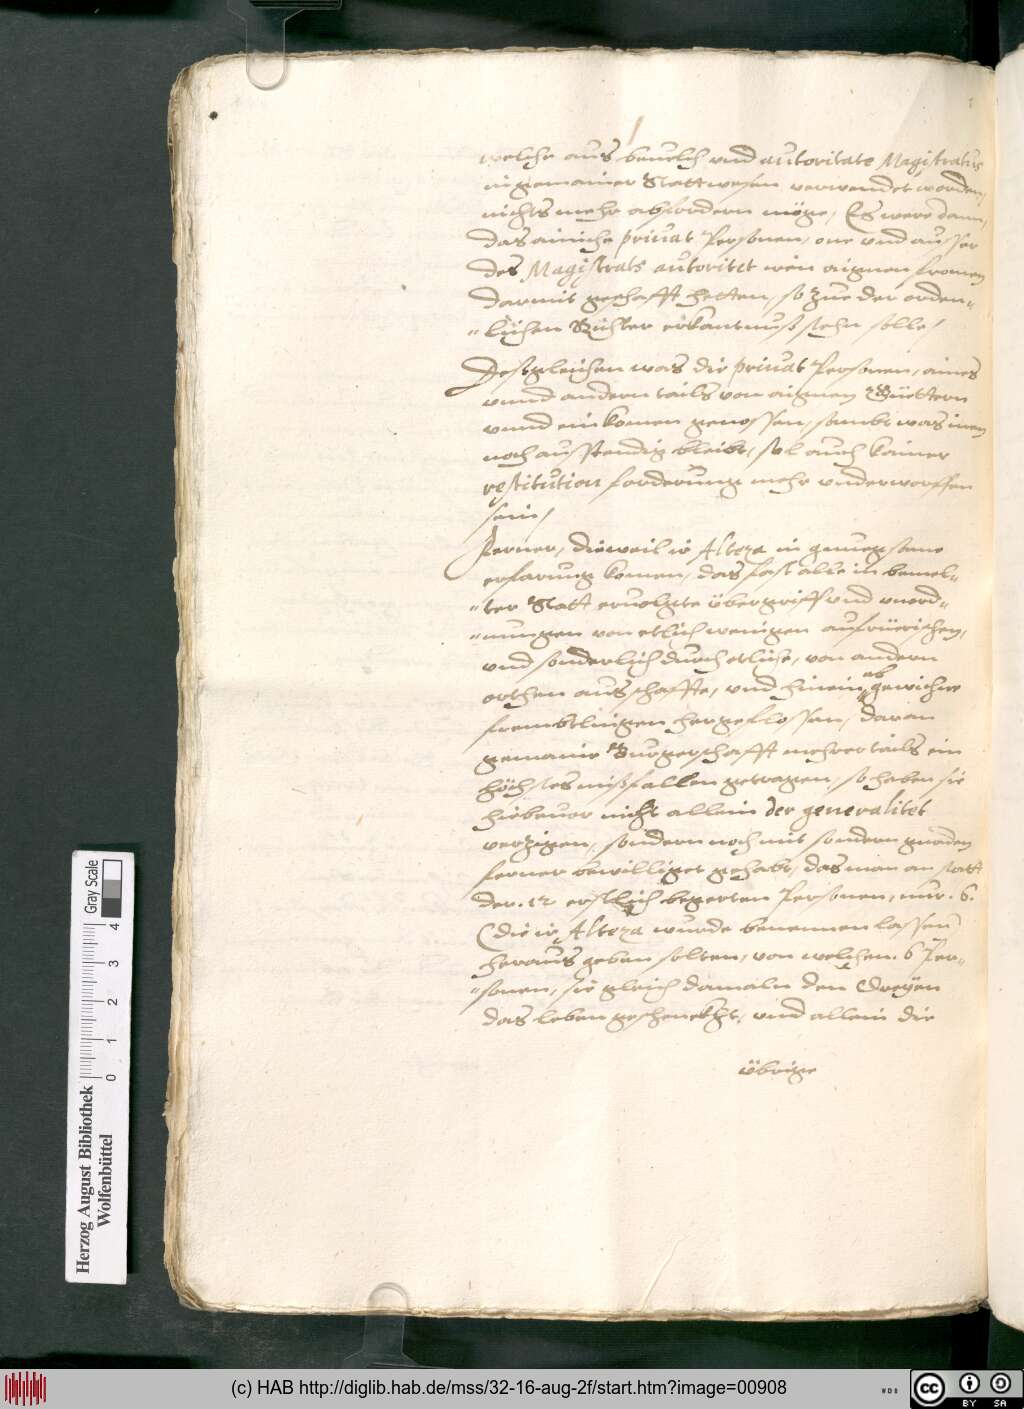 welche aus beuelch vnd autoritate Magistratus
in gemainer Statt wesen verwendet worden,
nichts mehr abfordern möge, Es were dann,
das ainiche priuat Personen, one vnd ausser
des Magistrats autoritet iren aignen fromen
darmit geschafft hetten, so zue der orden-
-lichen Richter erkantnuß stehn solle,
Desßgleichen was die priuat Personen, aines
vnnd andern tails von aignen Güettern
vnnd einkomen genossen, sambt was inen
noch ausstendig bleibt, sol auch kainer
restitution forderung mehr vnderworffen
sein,
Ferner, dieweil ir Alteza in gnuegsame
erfarung komen, das fast alle in bemel-
-ter Statt eruolgte übergriff vnd vnord-
-nungen von etlich wenigen aufrüerischen,
vnd sonderlich durch etliche, von andern
orthen ausschaffte, vnd hinein gewichne
ab
frembtlingen hergeflossen, daran
gemaine Burgerschafft mehrertails ein
höchstes mißfallen getragen, so haben sie
hieuor nicht allein der generalitet
verzigen, sondern noch mit sondern gnaden
ferner bewilliget gehabt, das man an statt
der .12 erstlich begerten Personen, nur .6.
(die ir Alteza wurde benennen lassen)
heraus geben solten, von welchen .6 Per-
-sonen, sie gleich damaln den Dreyen
das leben geschenckht, vnd allein die
übrige
Herzog August Bibliothek
Wolfenbüttel
0 1 2 3 4
Gray Scale
(c) HAB http://diglib.hab.de/mss/32-16-aug-2f/start.htm?image=00908
WDB
cc
BY SA